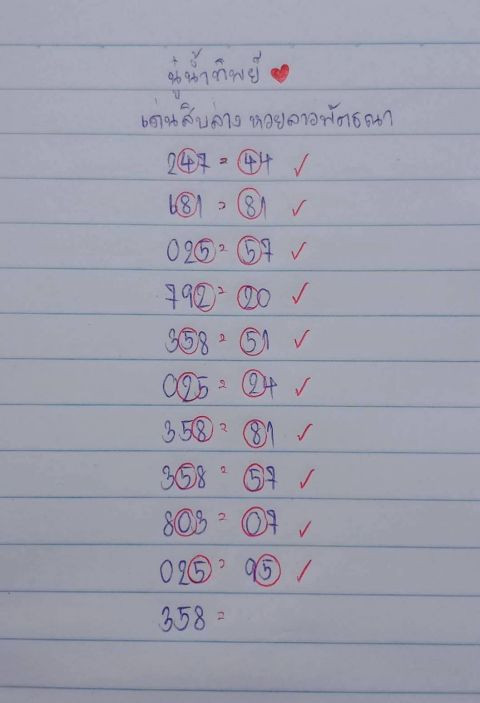 นู๋น้ำทิพย์ ❤
เด่นสิบล่าง หวยลาวพัฒนา
247 = 44 ✓
681 = 81 ✓
025 = 57 ✓
792 = 20 ✓
358 = 51 ✓
025 = 24 ✓
358 = 81 ✓
358 = 57 ✓
803 = 07 ✓
025 = 95 ✓
358 =